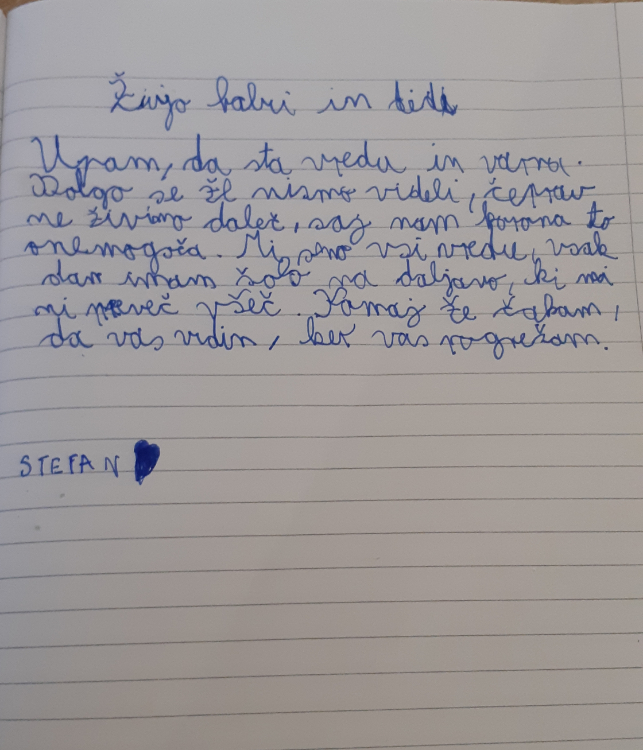 Živjo babi in dedi
Upam, da sta vredu in varna.
Dolgo se že nismo videli, čeprav
ne živimo daleč, saj nam korona to
onemogoča. Mi smo vsi vredu, vsak
dan imam šolo na daljavo, ki mi
ni preveč všeč. Komaj že čakam,
da vas vidim, ker vas pogrešam.
STEFAN